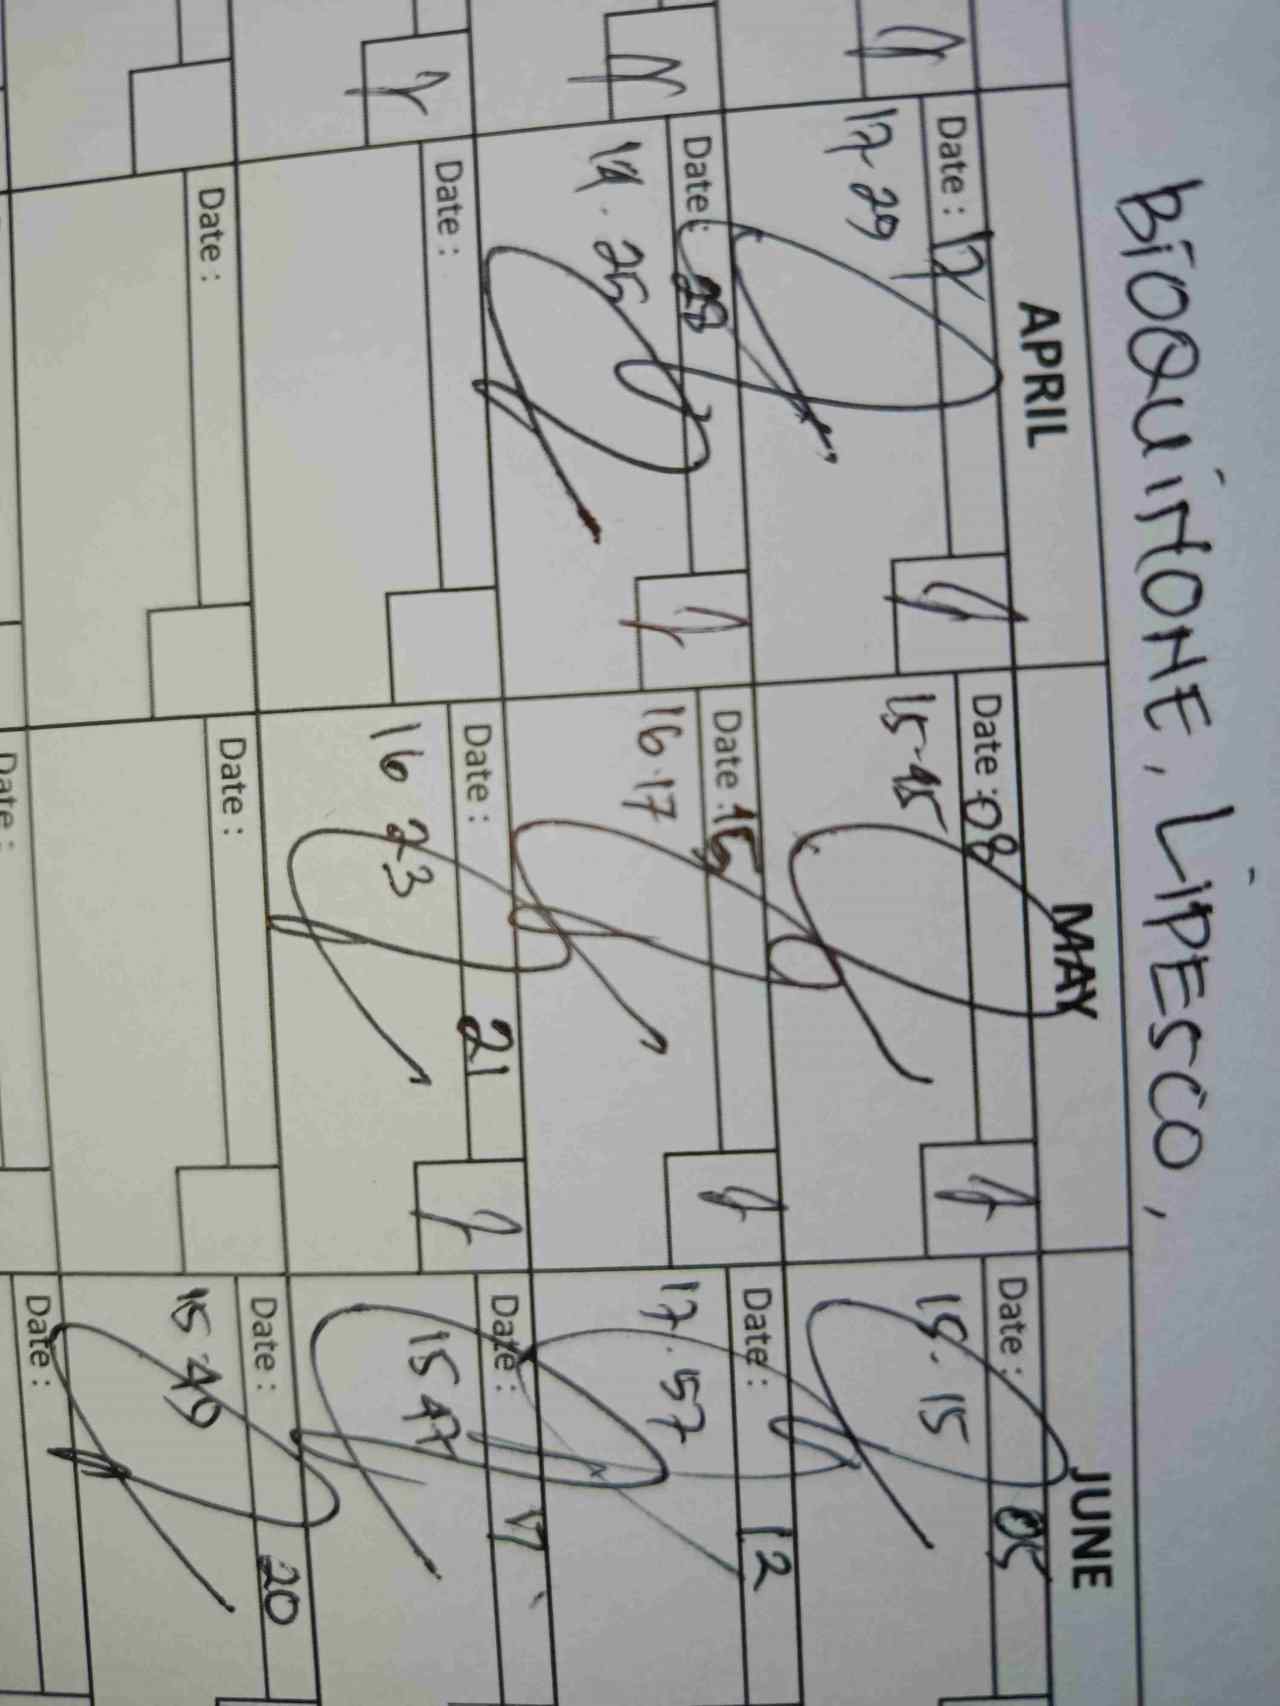 BIOQUINONE, LIPESCO,
APRIL MAY JUNE
Date : 12 Date : 08 Date : 05
17-29 15-45 15. 15
Date : 28 Date : 15 Date : 12
14. 25 16.17 17. 57
Date : Date : 21 Date : 17
16 23 15 47
Date : Date : Date : 20
15-49
Date : Date :